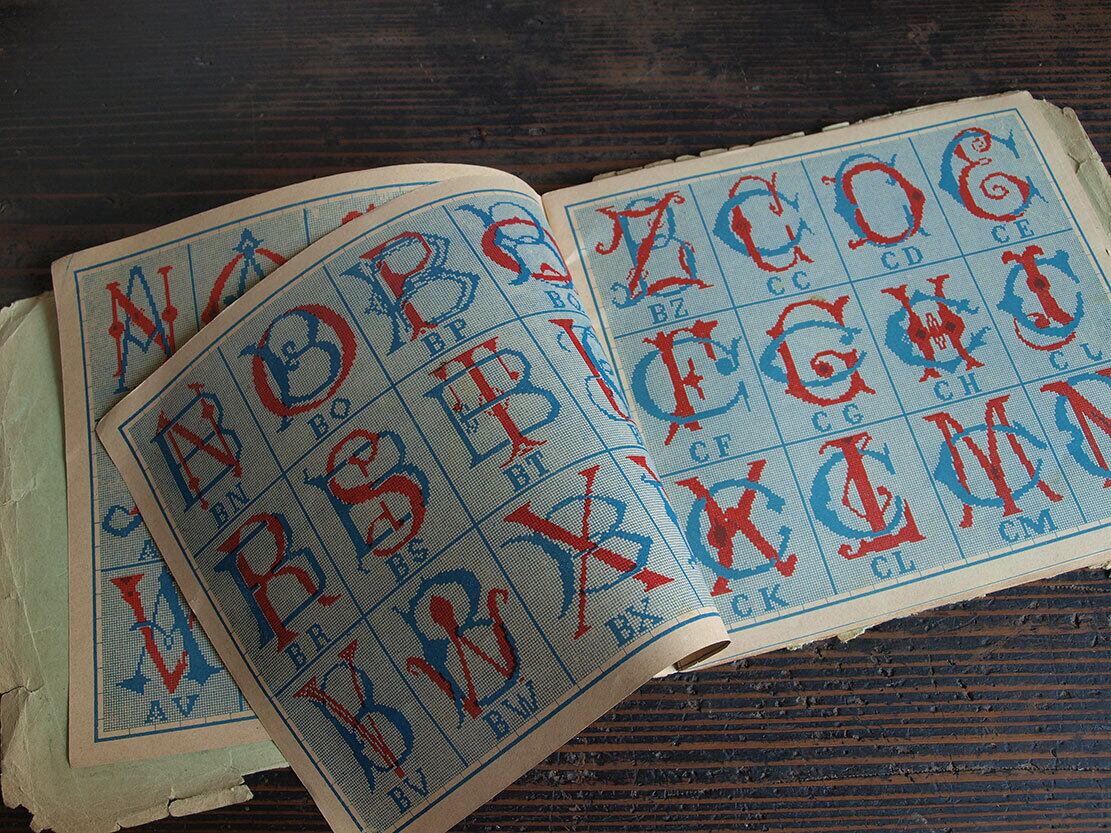 AV
BN
BO
BP
BQ
BR
BS
BT
BV
BW
BX
BZ
CC
CD
CE
CF
CG
CH
CI
CK
CL
CM